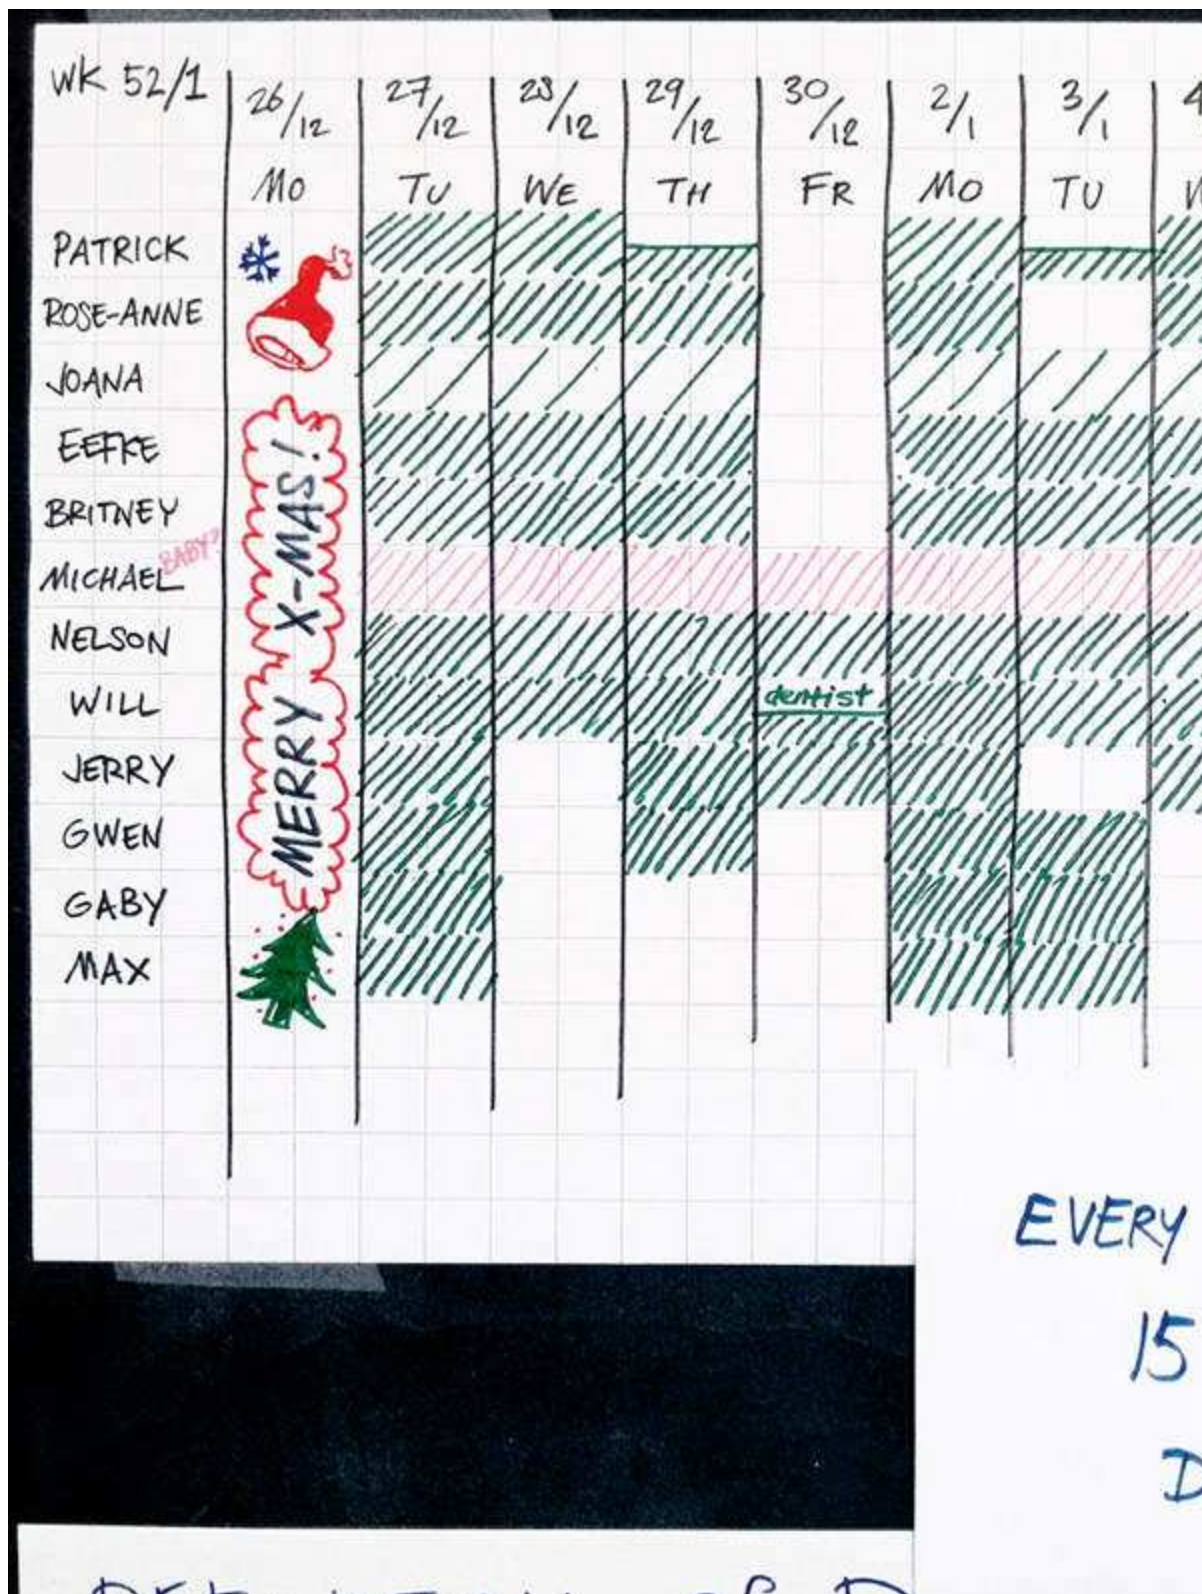 WK 52/1 26/12 27/12 28/12 29/12 30/12 2/1 3/1 4
MO TU WE TH FR MO TU W
PATRICK
ROSE-ANNE
JOANA
EEFKE
BRITNEY
BABY?
MICHAEL
NELSON
WILL dentist
JERRY
GWEN
GABY
MAX
MERRY X-MAS!
EVERY
15
D